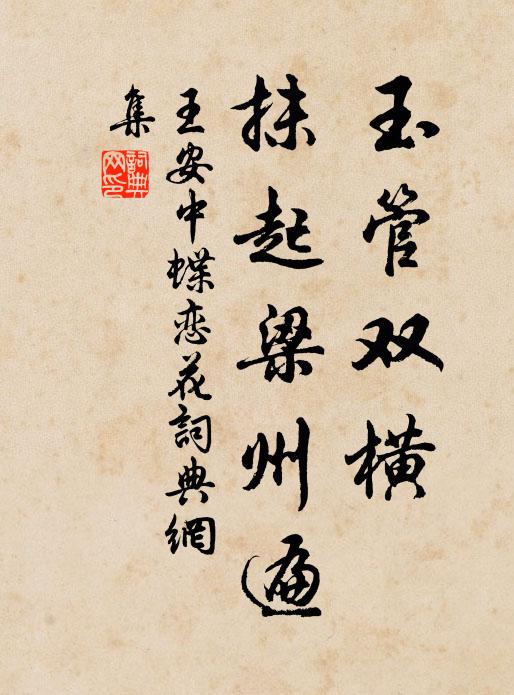 玉管双横
抹起梁州遍
王安中蝶恋花詞典網
集
詞典
网印